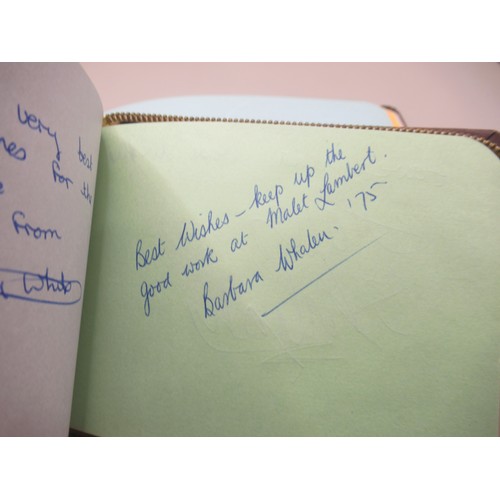 very best
for the
From
White
Best Wishes – keep up the
good work at Malet Lambert.
Barbara Whalen. '75